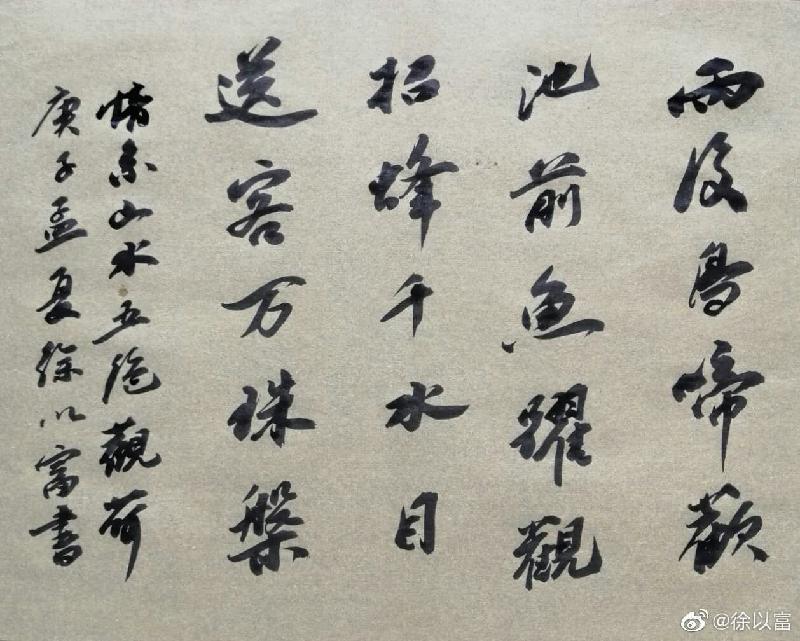 雨後鳥啼歡
池前魚躍觀
招蜂千水目
送客万珠盤
情系山水五絕觀荷
庚子孟夏徐以富書
@徐以富